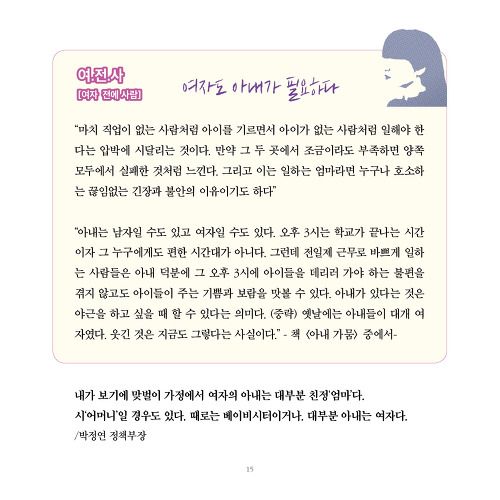 여.전.사
[여자 전에 사람]
여자도 아내가 필요하다
“마치 직업이 없는 사람처럼 아이를 기르면서 아이가 없는 사람처럼 일해야 한
다는 압박에 시달리는 것이다. 만약 그 두 곳에서 조금이라도 부족하면 양쪽
모두에서 실패한 것처럼 느낀다. 그리고 이는 일하는 엄마라면 누구나 호소하
는 끊임없는 긴장과 불안의 이유이기도 하다”
“아내는 남자일 수도 있고 여자일 수도 있다. 오후 3시는 학교가 끝나는 시간
이자 그 누구에게도 편한 시간대가 아니다. 그런데 전일제 근무로 바쁘게 일하
는 사람들은 아내 덕분에 그 오후 3시에 아이들을 데리러 가야 하는 불편을
겪지 않고도 아이들이 주는 기쁨과 보람을 맛볼 수 있다. 아내가 있다는 것은
야근을 하고 싶을 때 할 수 있다는 의미다. (중략) 옛날에는 아내들이 대개 여
자였다. 웃긴 것은 지금도 그렇다는 사실이다.” - 책 〈아내 가뭄〉 중에서-
내가 보기에 맞벌이 가정에서 여자의 아내는 대부분 친정‘엄마’다.
시‘어머니’일 경우도 있다. 때로는 베이비시터이거나. 대부분 아내는 여자다.
/박정연 정책부장
15